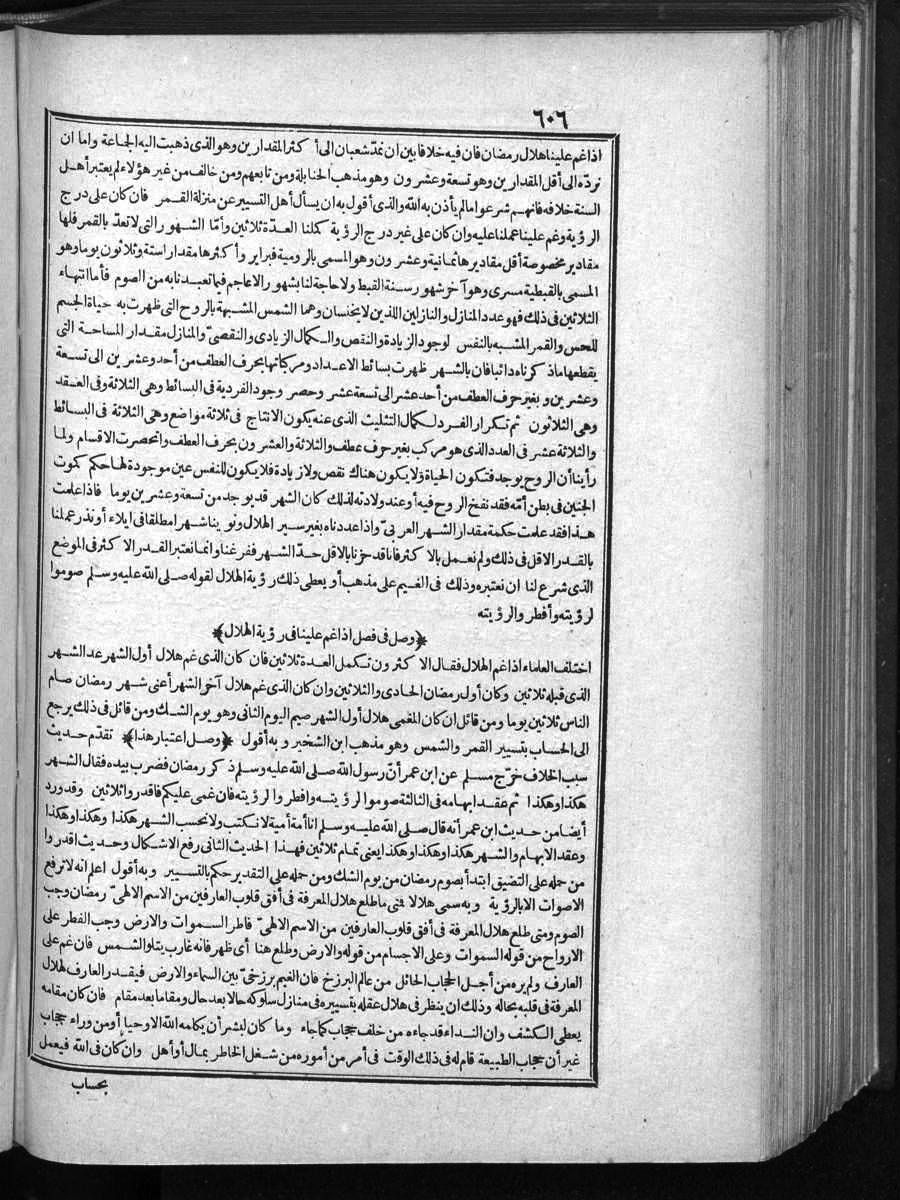 ٦٠٦
اذا غم علينا هلال رمضان فان فيه خلافا بين ان نمدّ شعبان الى أ كثر المقدارين وهو الذى ذهبت اليه الجماعة واما ان
نردّه الى أقل المقدارين وهو تسعة وعشرون وهو مذهب الحنابلة ومن تابعهم ومن خالف من غير هؤلاء لم يعتبر أهل
السنة خلافه فانهم شرعوا ما لم يأذن به الله والذى أقول به ان يسأل أهل التسيير عن منزلة القمر فان كان على درج
الرؤية وغم علينا عملنا عليه وان كان على غير درج الرؤية كملنا العدّة ثلاثين وأمّا الشهور التى لا تعدّ بالقمر فلها
مقادير مخصوصة أقل مقاديرها ثمانية وعشرون وهو المسمى بالرومية فبراير وأ كثرها مقدارا ستة وثلاثون يوما وهو
المسمى بالقبطية مسرى وهو آخر شهور سنة القبط ولا حاجة لنا بشهور الاعاجم فيما تعبدنا به من الصوم فأما انتهاء
الثلاثين فى ذلك فهو عدد المنازل والنازلين اللذين لا يخنسان وهما الشمس المشبهة بالروح التى ظهرت به حياة الجسم
للحس والقمر المشبه بالنفس لوجود الزيادة والنقص والكمال الزيادى والنقصىّ والمنازل مقدار المساحة التى
يقطعها ماذ كرناه دائبا فان بالشهر ظهرت بسائط الاعداد ومركباتها بحرف العطف من أحد وعشرين الى تسعة
وعشرين وبغير حرف العطف من أحد عشر الى تسعة عشر وحصر وجود الفردية فى البسائط وهى الثلاثة وفى العقد
وهى الثلاثون ثم تكرار الفرد لكمال التثليث الذى عنه يكون الانتاج فى ثلاثة مواضع وهى الثلاثة فى البسائط
والثلاثة عشر فى العدد الذى هو مركب بغير حرف عطف والثلاثة والعشرون بحرف العطف وانحصرت الاقسام ولما
رأينا أن الروح يوجد فتكون الحياة ولا يكون هناك نقص ولا زيادة فلا يكون للنفس عين موجودة لها حكم كموت
الجنين فى بطن أمّه فقد نفخ الروح فيه أو عند ولادته لذلك كان الشهر قد يوجد من تسعة وعشرين يوما فاذا علمت
هذا فقد علمت حكمة مقدار الشهر العربىّ واذا عددناه بغير سير الهلال ونوينا شهرا مطلقا فى ايلاء أو نذر عملنا
بالقدر الاقل فى ذلك ولم نعمل بالا كثر فانا قد حزنا بالاقل حدّ الشهر ففرغنا وانما نعتبر القدر الا كثر فى الموضع
الذى شرع لنا ان نعتبره وذلك فى الغيم على مذهب أو يعطى ذلك رؤية الهلال لقوله صلى الله عليه وسلم صوموا
لرؤيته وأفطروا لرؤيته
﴿وصل فى فصل اذا غم علينا فى رؤية الهلال﴾
اختلف العلماء اذا غم الهلال فقال الا كثرون تكمل العدة ثلاثين فان كان الذى غم هلال أول الشهر عد الشهر
الذى قبله ثلاثين وكان أول رمضان الحادى والثلاثين وان كان الذى غم هلال آخر الشهر أعنى شهر رمضان صام
الناس ثلاثين يوما ومن قائل ان كان المغمى هلال أول الشهر صيم اليوم الثانى وهو يوم الشك ومن قائل فى ذلك يرجع
الى الحساب بتسيير القمر والشمس وهو مذهب ابن الشخير وبه أقول ﴿وصل اعتبار هذا﴾ تقدّم حديث
سبب الخلاف خرّج مسلم عن ابن عمر أنّ رسول الله صلى الله عليه وسلم ذ كر رمضان فضرب بيده فقال الشهر
هكذا وهكذا ثم عقد ابهامه فى الثالثة صوموا لرؤيته وافطروا لرؤيته فان غمى عليكم فاقدروا ثلاثين وقد ورد
أيضا من حديث ابن عمر أنه قال صلى الله عليه وسلم انا أمة أمية لا نكتب ولا نحسب الشهر هكذا وهكذا وهكذا
وعقد الابهام والشهر هكذا وهكذا وهكذا يعنى تمام ثلاثين فهذا الحديث الثانى رفع الاشكال وحديث اقدروا
من حمله على التضيق ابتدأ بصوم رمضان من يوم الشك ومن حمله على التقدير حكم بالتسيير وبه أقول اعلم انه لا ترفع
الاصوات الا بالرؤية وبه سمى هلالا فمتى ما طلع هلال المعرفة فى أفق قلوب العارفين من الاسم الالهىّ رمضان وجب
الصوم ومتى طلع هلال المعرفة فى أفق قلوب العارفين من الاسم الالهىّ فاطر السموات والارض وجب الفطر على
الارواح من قوله السموات وعلى الاجسام من قوله والارض وطلع هنا أى ظهر فانه غارب يتلو الشمس فان غم على
العارف ولم يره من أجل الحجاب الحائل من عالم البرزخ فان الغيم برزخىّ بين السماء والارض فيقدر العارف لهلال
المعرفة فى قلبه بحاله وذلك ان ينظر فى هلال عقله بتسييره فى منازل سلوكه حالا بعد حال ومقاما بعد مقام فان كان مقامه
يعطى الكشف وان النداء قد جاءه من خلف حجاب كما جاء وما كان لبشر أن يكلمه الله الا وحيا أو من وراء حجاب
غير أن حجاب الطبيعة قام له فى ذلك الوقت فى أمر من أموره من شغل الخاطر بمال أو أهل وان كان فى الله فيعمل
بحساب